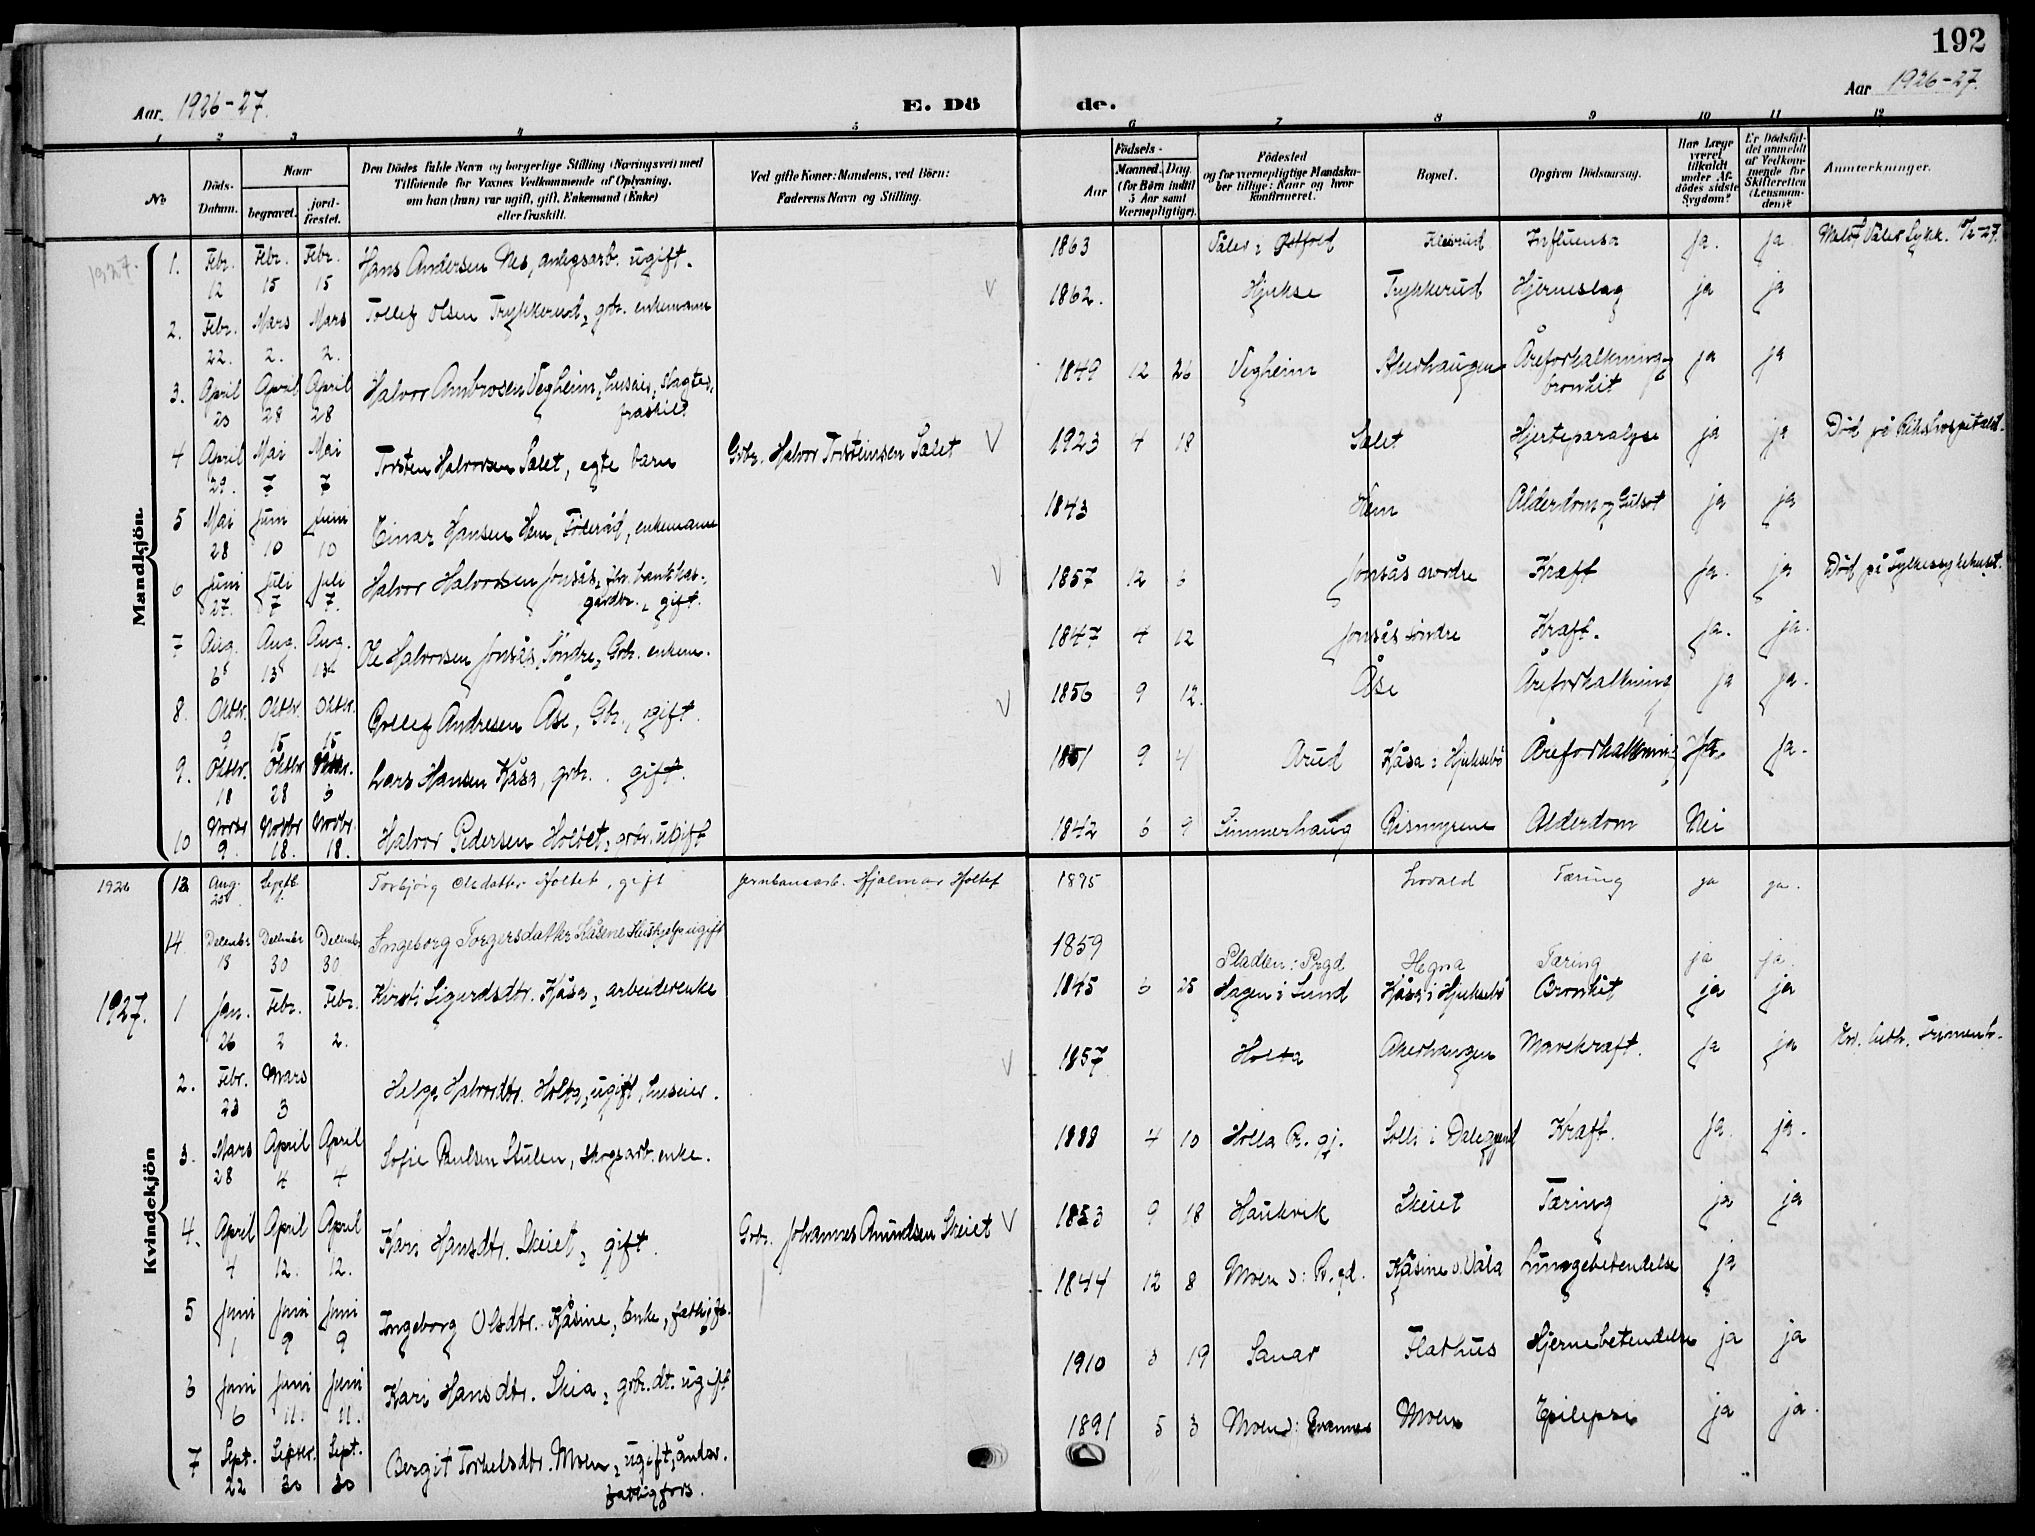 192
Aar. 1926-27.
E. Dö
de.
Aar 1926-27.
1 2 3 4 5 6 7 8 9 10 11 12
No
Döds-Datum.
Naar
begravet.
jord-fæstet.
Den Dödes fulde Navn og borgerlige Stilling (Næringsvei) med
Tilföiende for Voxnes Vedkommende af Oplysning,
om han (hun) var ugift, gift, Enkemand (Enke)
eller fraskilt.
Ved gifte Koner: Mandens, ved Börn:
Faderens Navn og Stilling.
Födsels-
Aar
Maaned. Dag.
(for Börn indtil
5 Aar samt
Værnepligtige).
Födested
og for værnepligtige Mandska-
ber tillige: Naar og hvor
konfirmeret.
Bopæl.
Opgiven Dödsaarsag.
Har Læge
været
tilkaldt
under Af-
dödes sidste
Sygdom?
Er Dödsfal-
det anmeldt
af Vedkom-
mende for
Skifteretten
(Lensman-
den)?
Anmerkninger.
Mandkjön.
1927.
1. Febr. 12 Febr. 15 Febr. 15 Hans Andersen Nes, anlegsarb. ugift. 1863 Våler i Østfold Klevrud Influensa ja. ja Våler Sykk.
2. Febr. 22. Mars 2. Mars 2. Tollef Olsen Trykkerud, gbr. enkemann 1862. Hjukse Trykkerud Hjerneslag ja ja
3. April 23 April 28 April 28 Halvor Ambrosen Vegheim, huseier, slagter, fraskilt 1849 12 26 Vegheim Akerhaugen Åreforkalkning og bronkit ja ja
4 April 29. Mai 7 Mai 7 Torsten Halvorsen Sælet, egte barn Gbr. Halvor Torsteinsen Sælet 1923 4 18 Sælet Hjerteparalyse ja ja Død på Rikshospitalet.
5 Mai 28 Juni 10 Juni 10 Einar Hansen Hem, Föderåd, enkemann 1843 Hem Alderdom og Gulsot ja ja
6 Juni 27. Juli 7 Juli 7. Halvor Halvorsen Jonsås, fhv. bankkas., gardbr., gift. 1857 12 Jonsås nordre Kræft ja. ja Død på Fylkessykehuset.
7 Aug. 6 Aug. 13 Aug. 13 Ole Halvorsen Jonsås, Söndre, Gbr. enkem. 1847 4 12 Jonsås söndre Kræft. ja. ja.
8. Oktbr. 9 Oktbr. 15 Oktbr. 15 Gollef Andresen Åse, Gbr., gift. 1856 9 12. Åse Åreforkalkning ja ja.
9. Oktbr. 18 Oktbr 28 Lars Hansen Kåsa, gbr. gift. 1851 9 4 Arud Kåsa i Hjuksebö Åreforkalkning Ja. ja.
10 Novbr 9. Novbr 18. Novbr. 18. Halvor Pedersen Holtet, gbr. ugift 1842 6 9 Simmerhaug Rismyrene Alderdom Nei
Kvindekjön
1926 13 Aug. Septb. Torbjörg Olsdatter Holtet, gift Jernbanearb. Hjalmar Holtet 1895 Lovald Tæring ja ja.
14. Decembr 18 Decembr 30 Decembr 30 Ingeborg Torgersdatter Håsene Hushjelp ugift 1859 Pladsen: Prgd Hegna Tæring ja ja.
1927. 1 Jan. 26 Febr. 2 Febr. 2. Kirsti Sigurdsdtr. Kåsa, arbeiderenke 1845 6 25 Hagen i Lund Kåsa i Hjuksebö Bronkit ja ja
2. Febr. 23 Mars 3 Helge Halvordtr. Holta, ugift, huseier. 1857 Holta Akerhaugen Mavekræft. ja ja Ev. luth. Frimenh.
3. Mars 28 April 4 April 4 Sofie Paulsen Stulen, skogsarb. enke. 1888 4 10 Holla Pr.gj. Solli i Dalegrend Kræft. ja. ja.
4. April 4 April 12. April 12. Kari Hansdtr. Skeiet, gift. Gbr. Johannes Amundsen Skeiet 1853 9 18 Haukvik Skeiet Tæring ja ja
5 Juni 1 Juni 9 Juni 9 Ingeborg Olsdtr. Kåsine, Enke, fattigfs. 1844 12 8 Moen Kåsine v. Våla Lungebetendelse ja
6 Juni 6 Juni 11. Juni 11. Kari Hansdtr. Skia, gbr.dt. ugift 1910 3 19 Sanar Flathus Hjernebetendelse ja ja
7 Sept. 22 Septbr. 30 Sept. 30 Bergit Torkelsdtr. Moen, ugift, åndsv. fattigfors. 1891 5 3 Moen Moen Epilepsi ja ja.